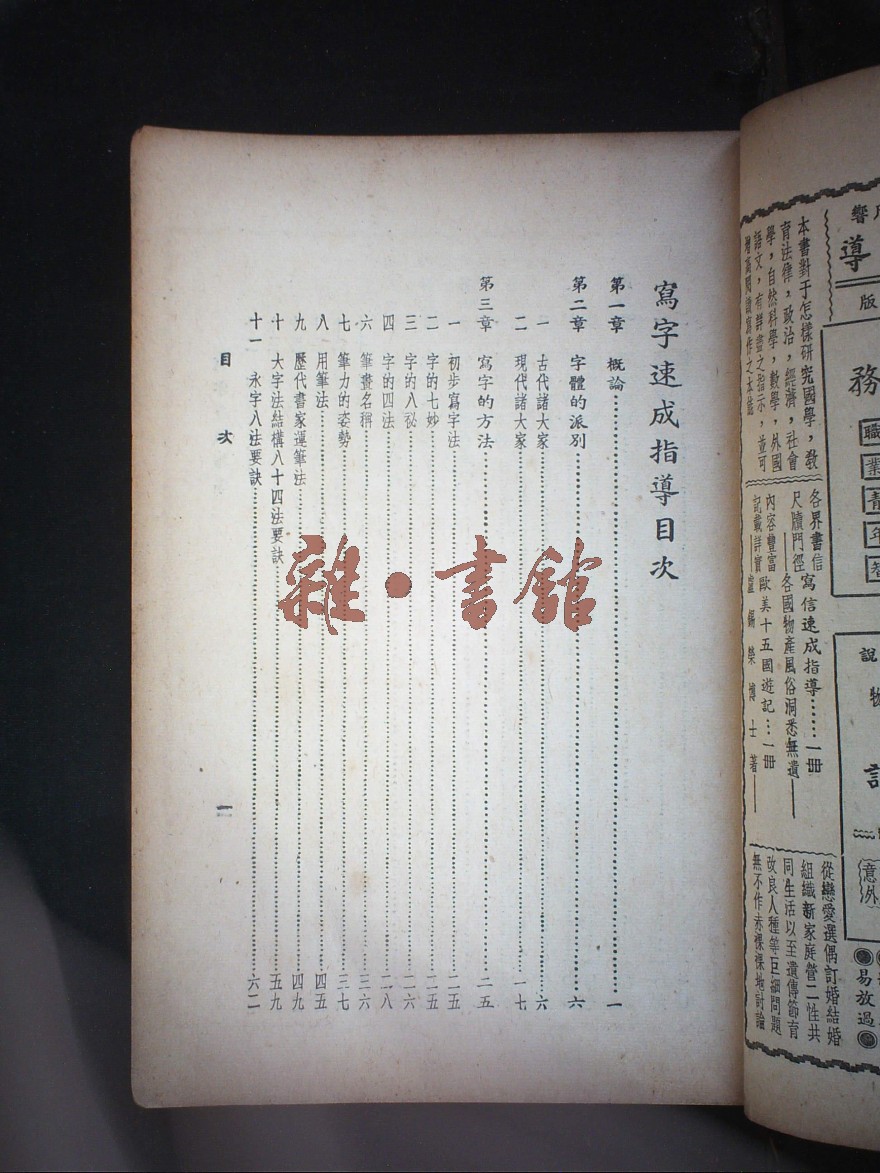 響
導
版
務
職業青年智
本書對于怎樣研究國學，教
育法律，政治，經濟，社會
學，自然科學，數學，外國
語文，有詳盡之指示，並可
增高閱讀寫作之本能
各界書信
尺牘門徑
寫信速成指導……一冊
各國物產風俗洞悉無遺
內容豐富
記載詳實
歐美十五國遊記…一冊
盧錫榮博士著
說
物
意外
易放過
從戀愛選偶訂婚結婚
組織新家庭營二性共
同生活以至遺傳節育
改良人種等巨細問題
無不作赤裸裸地討論
寫字速成指導目次
第一章 概論……一
第二章 字體的派別……六
一 古代諸大家……六
二 現代諸大家……一七
第三章 寫字的方法……二五
一 初步寫字法……二五
二 字的七妙……二五
三 字的八祕……二六
四 字的四法……二八
六 筆畫名稱……三六
七 筆力的姿勢……三七
八 用筆法……四五
九 歷代書家運筆法……四九
十 大字法結構八十四法要訣……五九
十一 永字八法要訣……六二
目次
一
雜·書舘